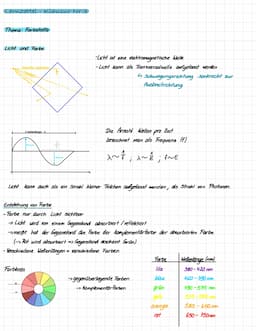 Lernzettel -
Thema: Farbstoffe
Licht und Farbe
- Licht ist eine elektromagnetische Welle
- Licht kann als Transversalwelle aufgefasst werden
↳ Schwingungsrichtung senkrecht zur
Ausbreitungsrichtung
Die Anzahl Wellen pro Zeit
bezeichnet man als Frequenz (f)
Licht kann auch als ein Strahl kleiner Teilchen aufgefasst werden, als Strahl von Photonen.
Entstehung von Farbe
- Farbe nur durch Licht sichtbar
→ Licht wird von einem Gegenstand absorbiert / reflektiert
→ meist hat der Gegenstand die Farbe der Komplementärfarbe der absorbierten Farbe
(→ Rot wird absorbiert → Gegenstand erscheint Grün)
- Verschiedene Wellenlängen = verschiedene Farben
Farbkreis
→ gegenüberliegende Farben
= Komplementärfarben
Farbe Wellenlänge (nm)
lila 380 - 420 nm
blau 420 - 490 nm
grün 490 - 575 nm
gelb 575 - 585 nm
orange 585 - 650 nm
rot 650 - 750 nm